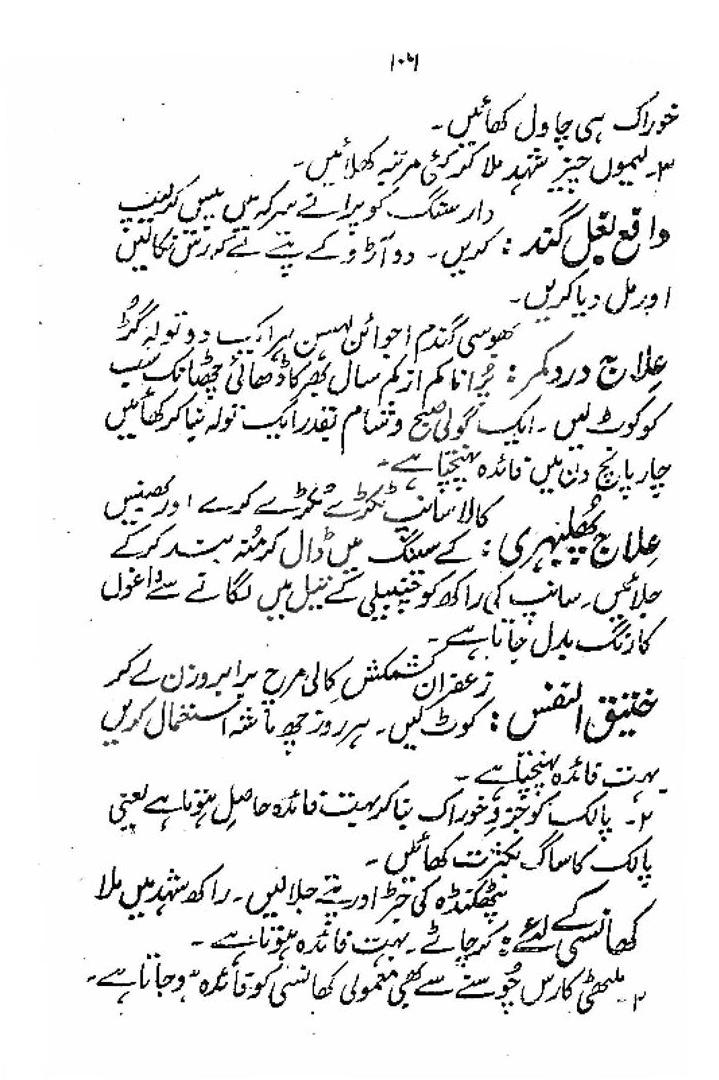 ۱۰۶
خوراک ہی چاول کھائیں۔
۳۔ لیموں چیز شہد ملا کر کئی مرتبہ کھلائیں۔
دافع بغل گند : دار سنگ کو پرانے سرکہ میں پیس کر لیپ
کریں۔ دو آڑو کے پتے لے کر رس نکالیں
اور مل دیا کریں۔
علاج درد کمر : بھوسی گندم اجوائن لہسن ہر ایک دو تولہ گڑ
پرانا کم از کم سال بھر کا ڈھائی چھٹانک سب
کو کوٹ لیں۔ ایک گولی صبح و شام بقدر ایک تولہ بنا کر کھائیں
چار پانچ دن میں فائدہ پہنچتا ہے۔
علاج پھلبہری : کالا سانپ ٹکڑے ٹکڑے کرے اور بھینس
کے سینگ میں ڈال کر منہ بند کر کے
جلائیں۔ سانپ کی راکھ کو چنبیلی کے تیل میں لگانے سے داغوں
کا رنگ بدل جاتا ہے۔
ضیق النفس : زعفران کشمکش کالی مرچ برابر وزن لے کر
کوٹ لیں۔ ہر روز چھ ماشہ استعمال کریں
بہت فائدہ پہنچتا ہے۔
۲۔ پالک کو جزو خوراک بنا کر بہت فائدہ حاصل ہوتا ہے یعنی
پالک کا ساگ بکثرت کھائیں۔
کھانسی کے لئے : پٹھکنڈہ کی جڑ اور پتے جلالیں۔ راکھ شہد میں ملا
کر چاٹے۔ بہت فائدہ ہوتا ہے۔
۲۔ ملٹھی کا رس چوسنے سے بھی معمولی کھانسی کو فائدہ ہو جاتا ہے۔